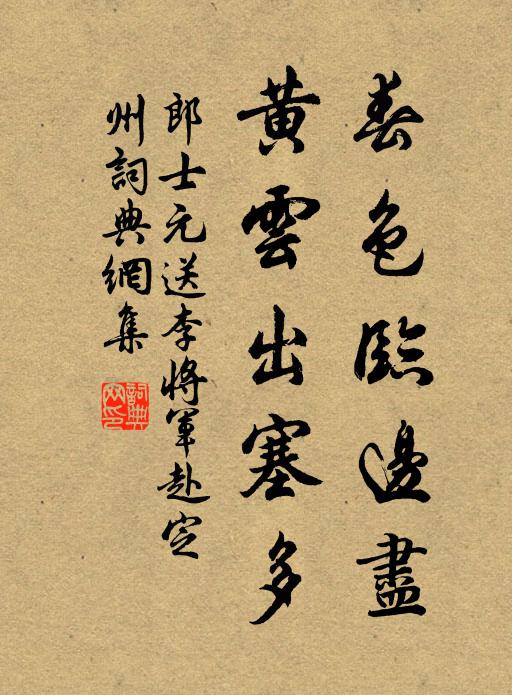 春色臨邊盡
黃雲出塞多
郎士元送李將軍赴定
州詞典網集
詞典網印